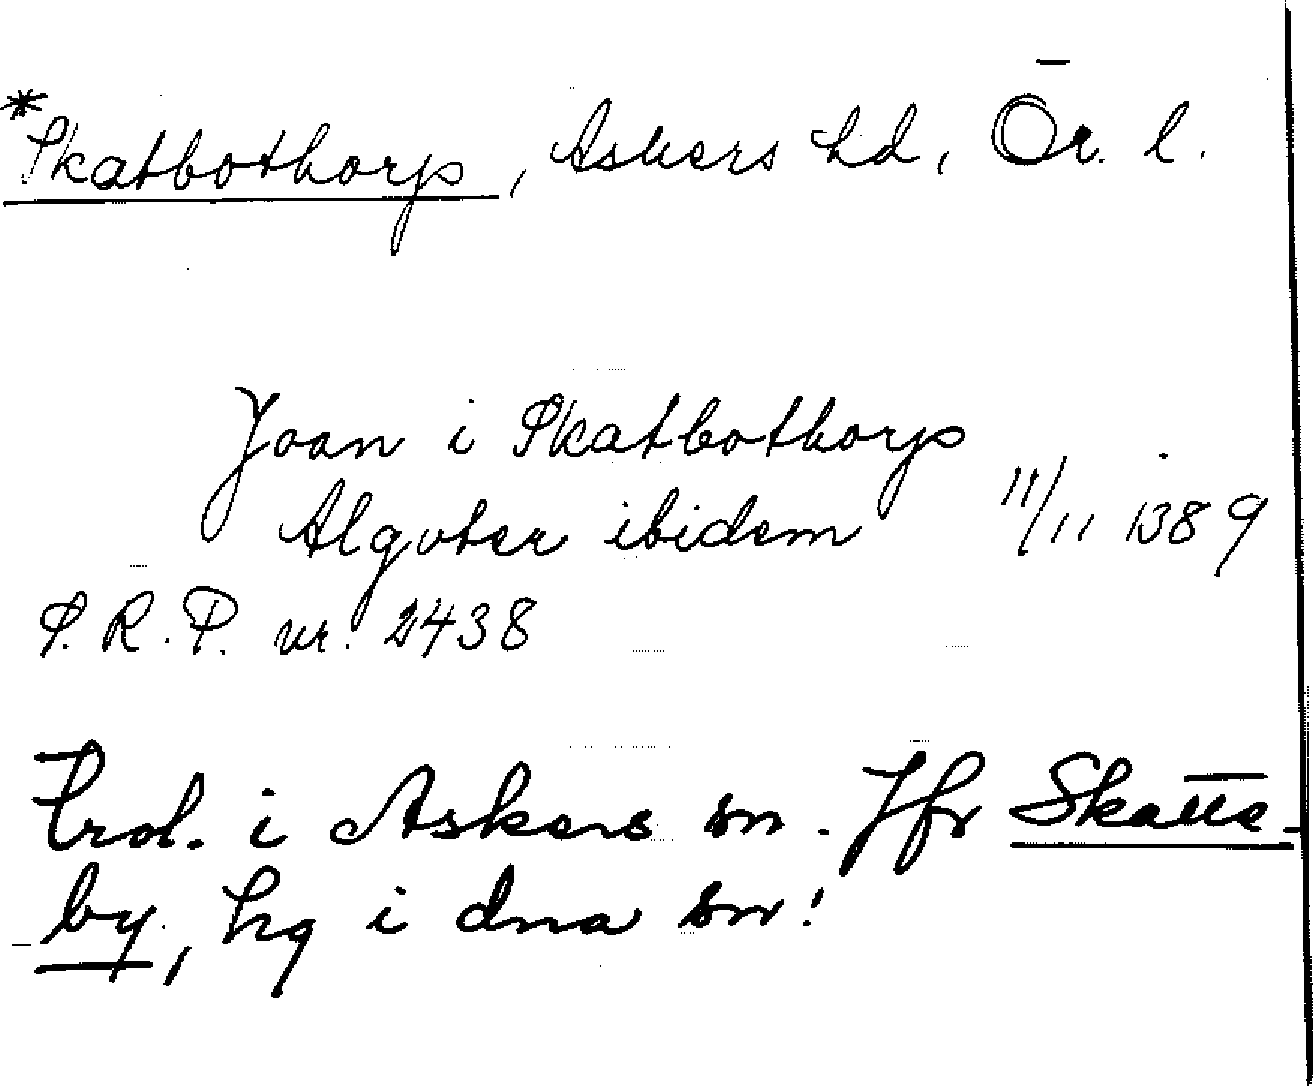 *Skatbothorp, Askers hd, Ör. l.
Joan i Skatbothorp
Algoter ibidem 11/11 1389
S.R.P. nr. 2438
Trol. i Askers sn. Jfr Skatte-
by, hg i dna sn!